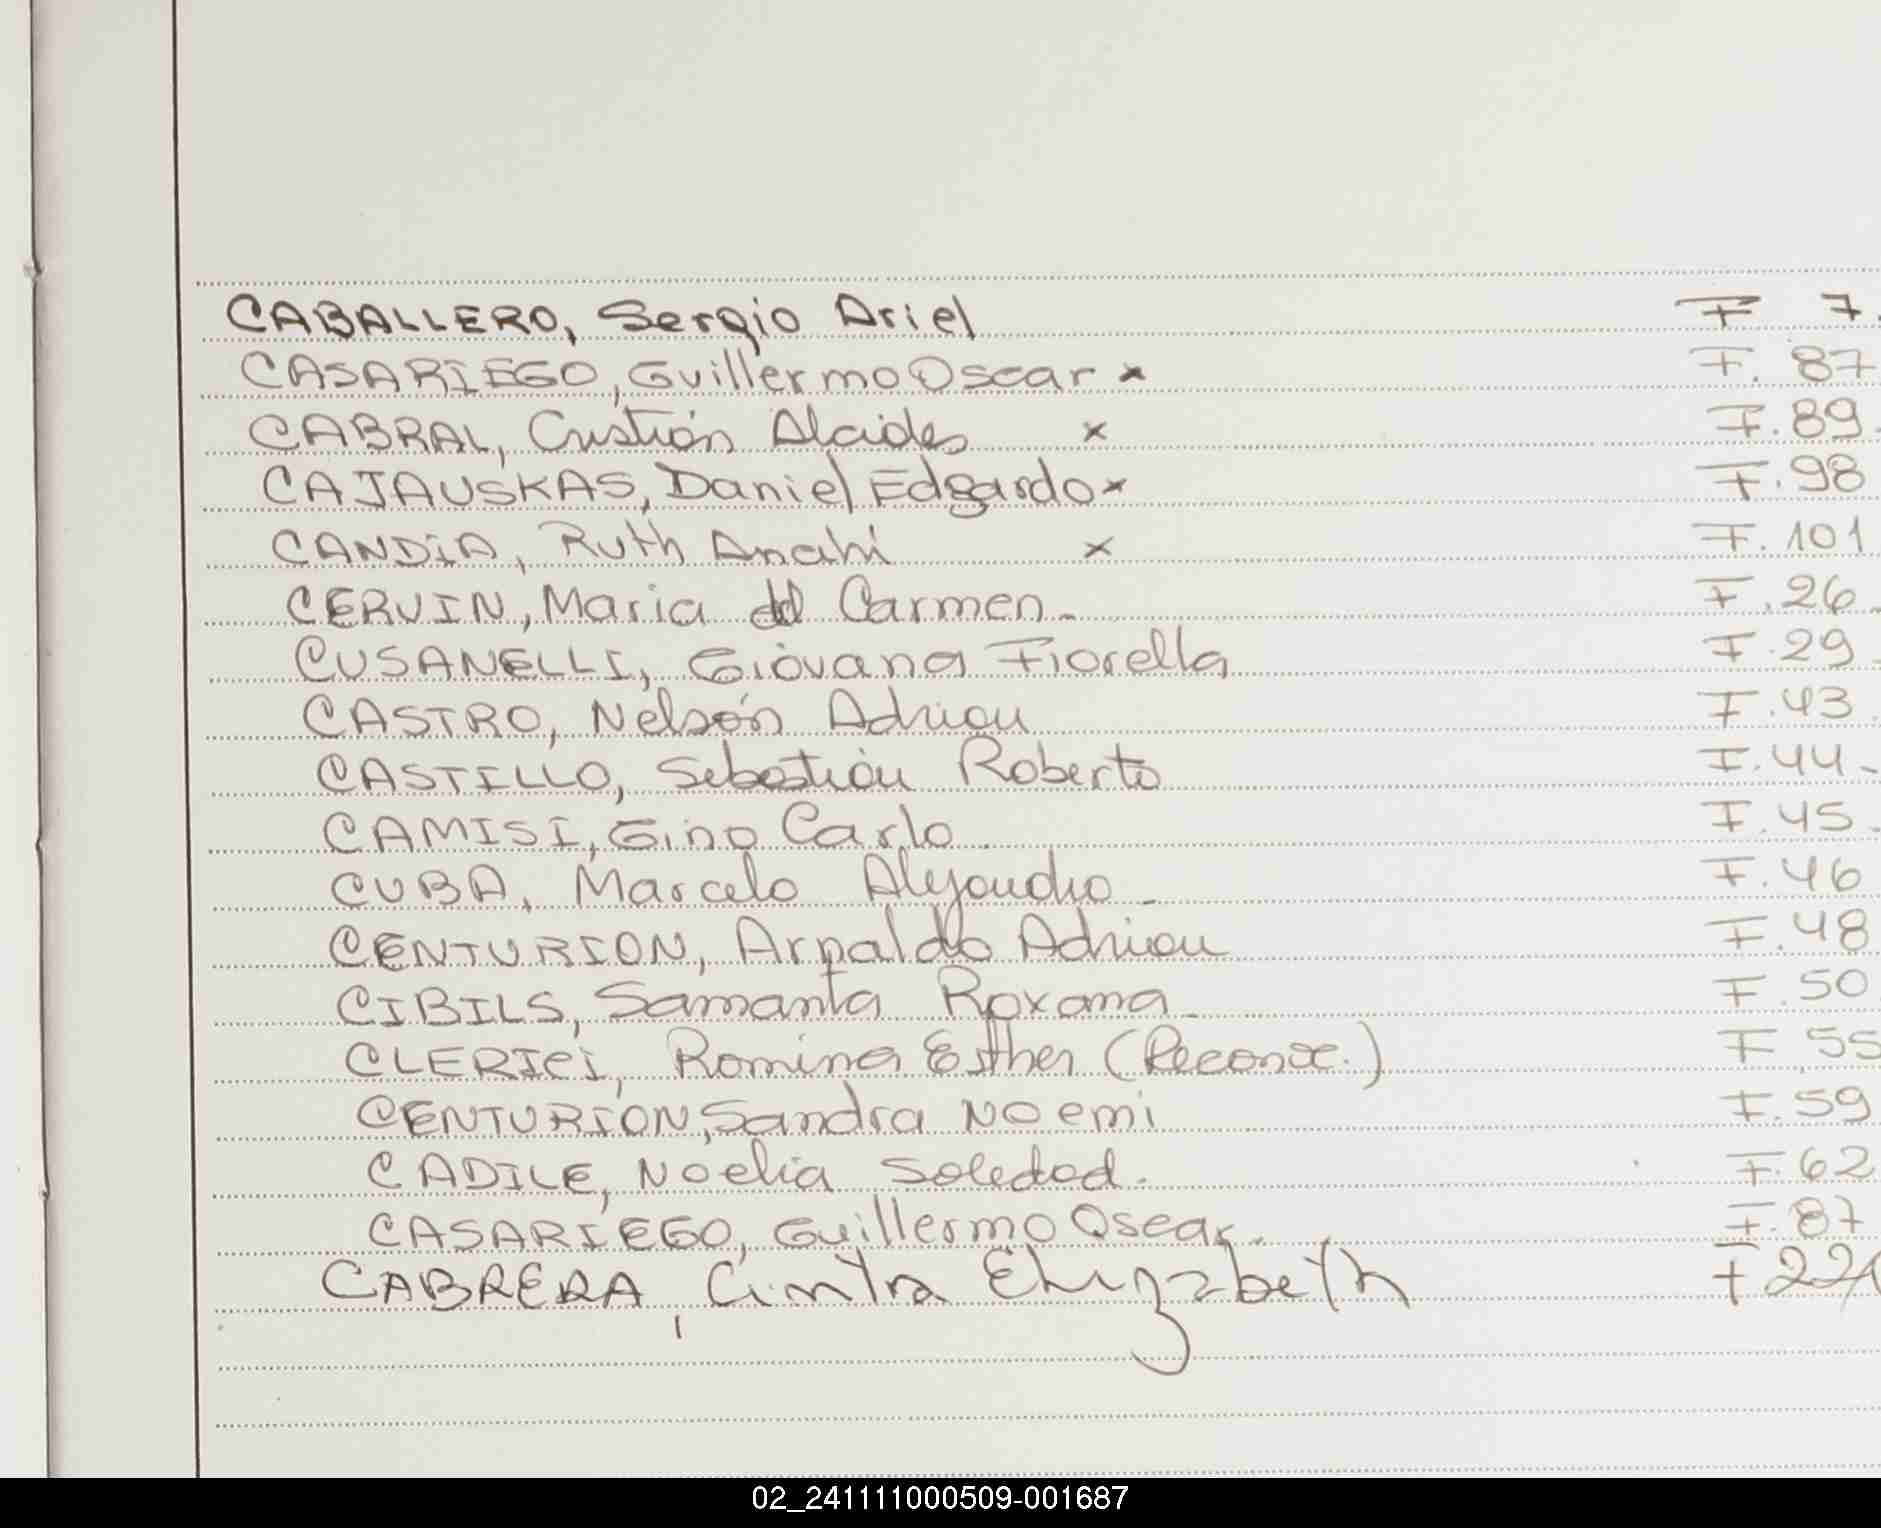 CABALLERO, Sergio Ariel F 7.
CASARIEGO, Guillermo Oscar x F. 87
CABRAL, Cristián Alcides x F. 89.
CAJAUSKAS, Daniel Edgardo x F. 98
CANDIA, Ruth Anahi x F. 101
CERVIN, Maria del Carmen - F. 26.
CUSANELLI, Giovana Fiorella F. 29.
CASTRO, Nelsón Adrian F. 43.
CASTILLO, Sebastián Roberto F. 44-
CAMISI, Gino Carlo. F. 45.
CUBA, Marcelo Alejandro - F. 46
CENTURION, Arnaldo Adrian F. 48
CIBILS, Samanta Roxana - F. 50.
CLERICI, Romina Esther F. 55
CENTURIÓN, Sandra Noemi F. 59
CADILE, Noelia Soledad. F. 62
CASARIEGO, Guillermo Oscar. F. 87
CABRERA, Cintia Elizabeth F
02_241111000509-001687